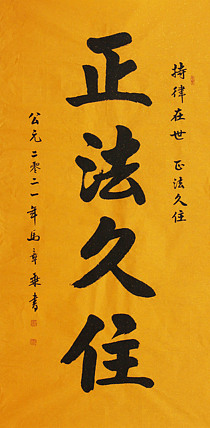 持律在世 正法久住
正法久住
公元二零二一年马章乘书